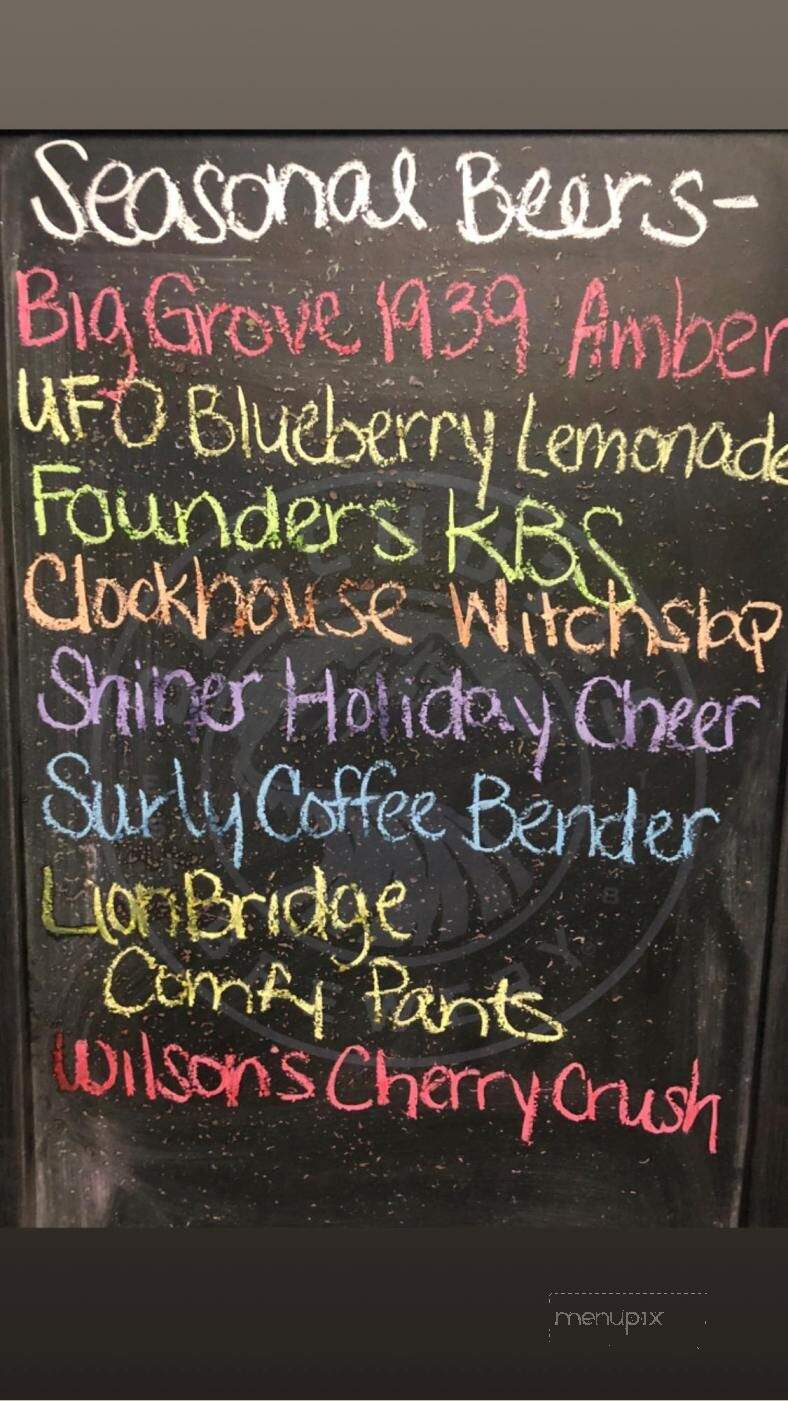 Seasonal Beers-
Big Grove 1939 Amber
UFO Blueberry Lemonade
Founders KBS
Clockhouse Witchslap
Shiner Holiday Cheer
Surly Coffee Bender
Lion Bridge
Comfy Pants
Wilson's Cherry Crush
menupix